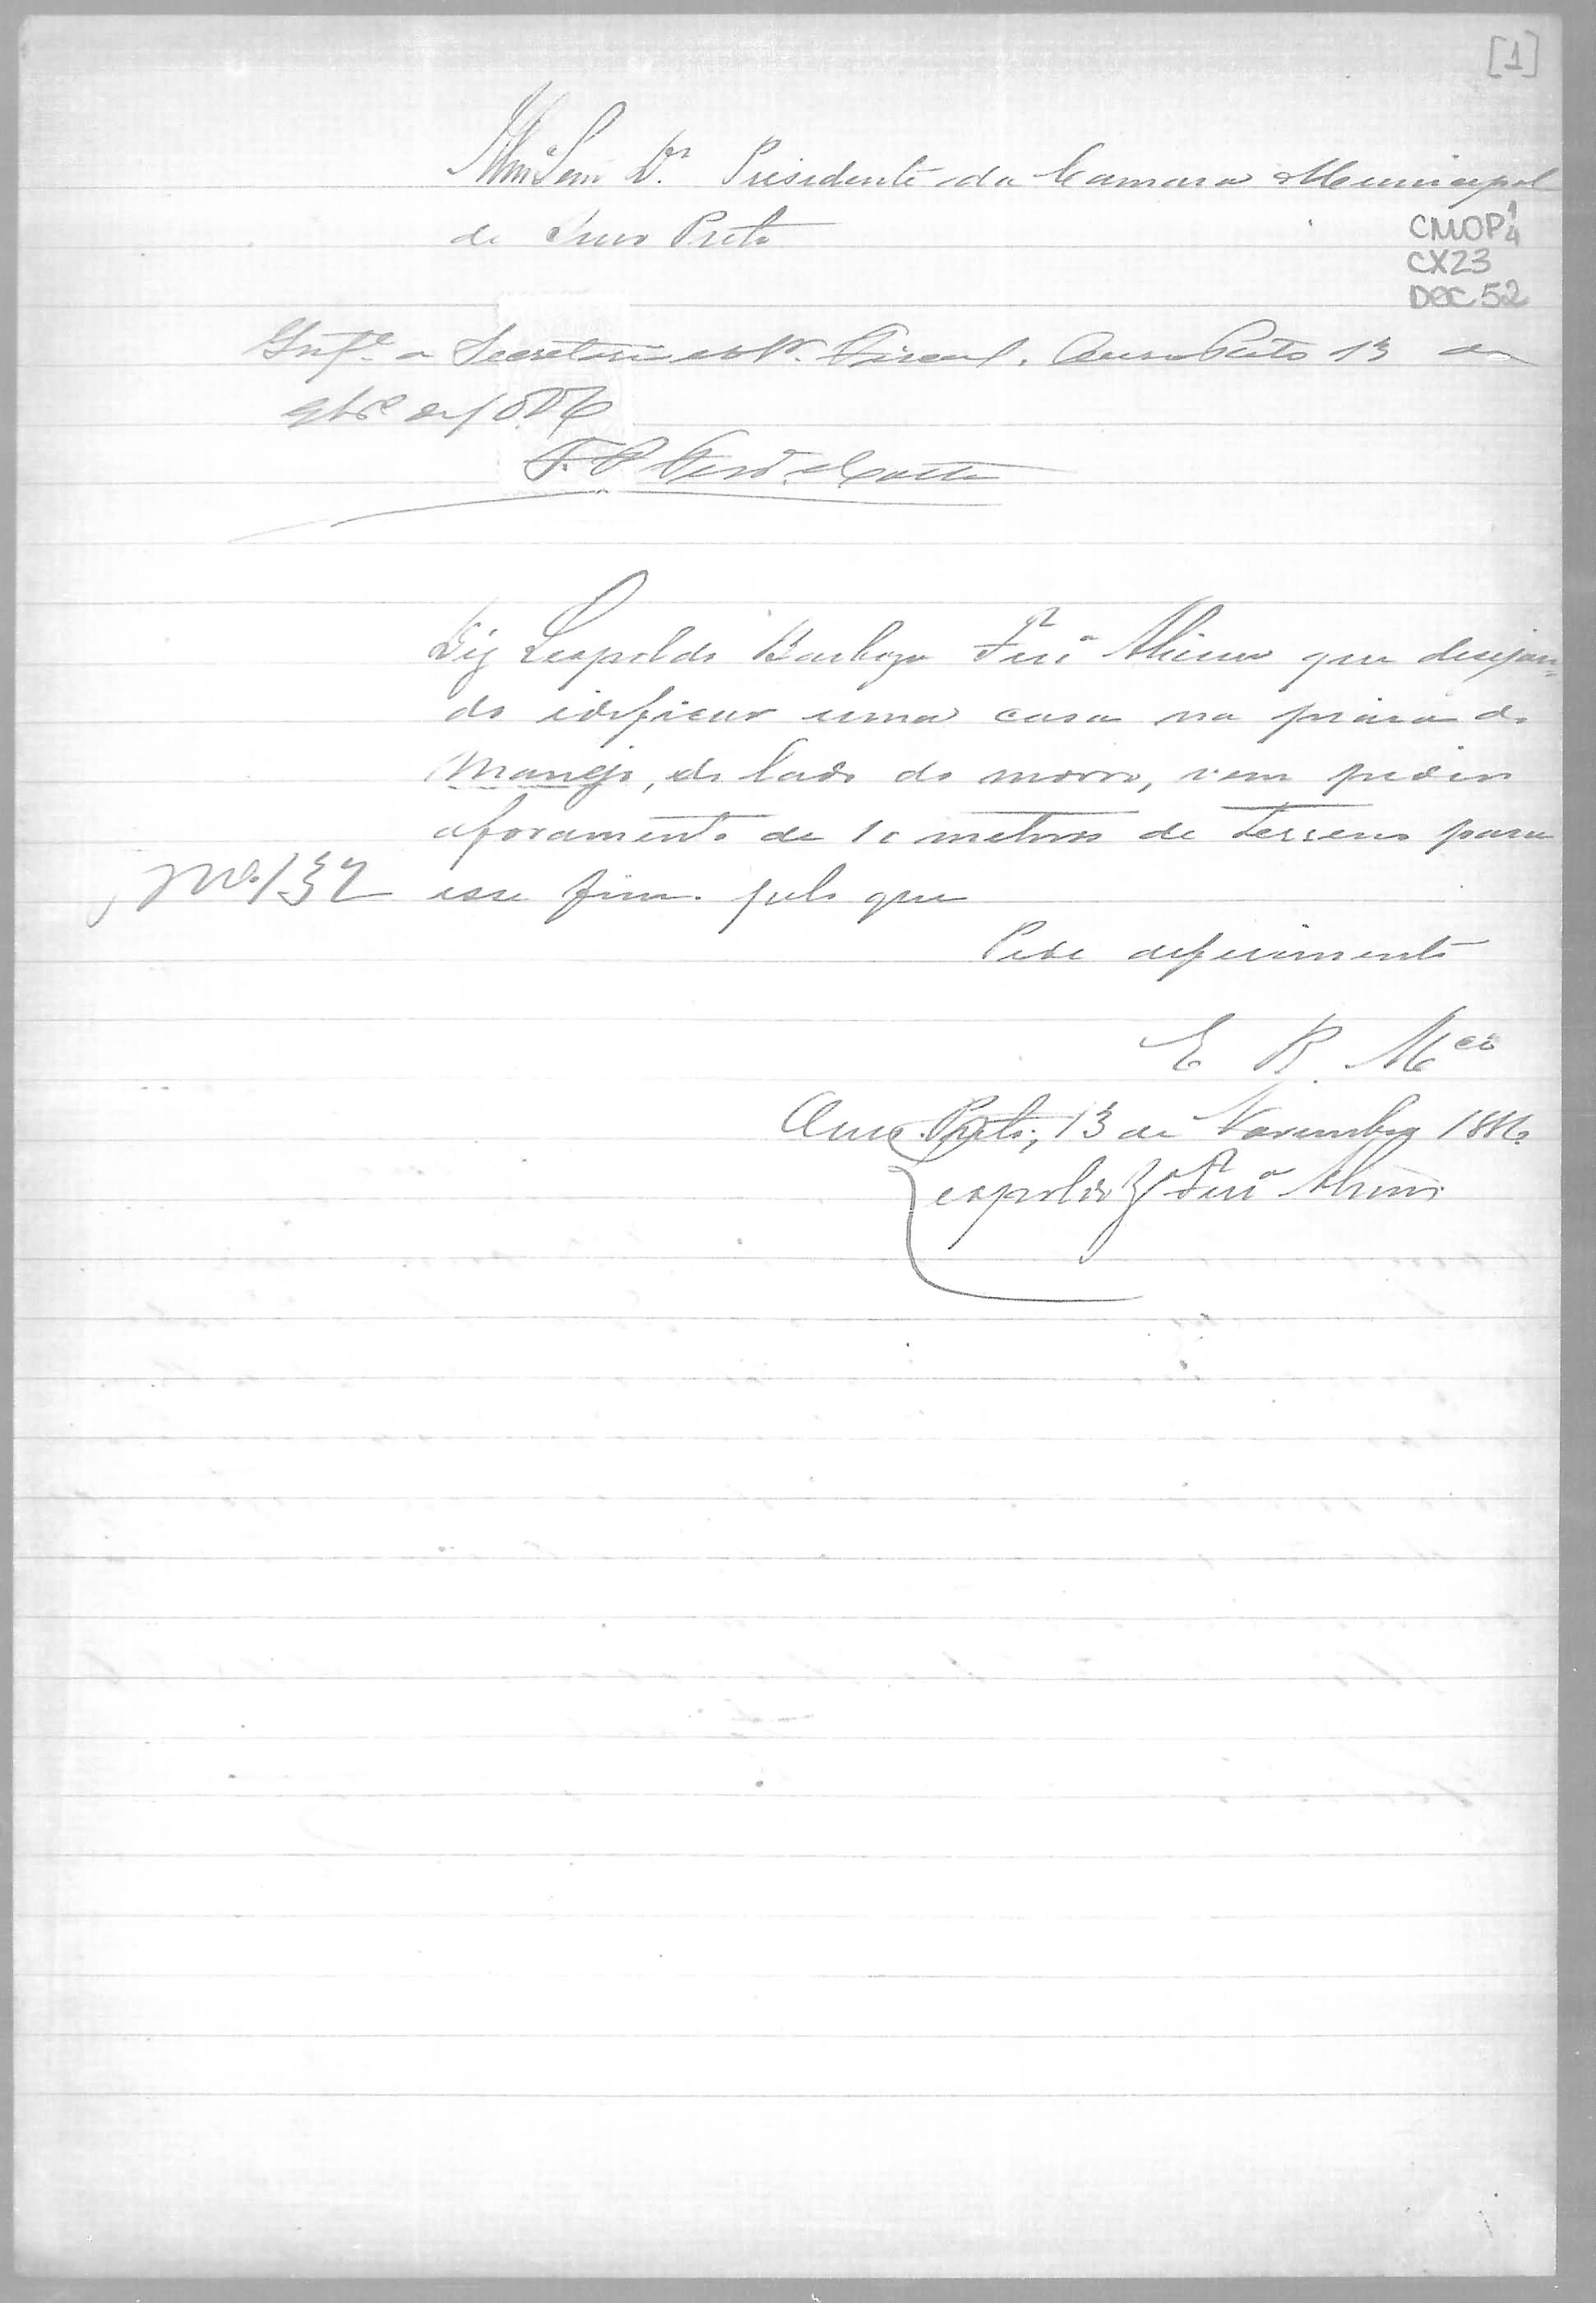 [1]
Illm Snr Dr. Presidente da Camara Municipal
de Ouro Preto
CMOP 1/4
CX23
DOC 52
Infe a Secretaria e o Sr. Fiscal. Ouro Preto 13 de
9bro de 1886
Diz Leopoldo Barboza que desejan=
do edificar uma casa na praia do
Manejo, do lado do morro, vem pedir
aforamento de 10 metros de terreno para
esse fim. pelo que
No. 132
Pede deferimento
E R Mce
Ouro Preto, 13 de Novembro 1886
Leopoldo B